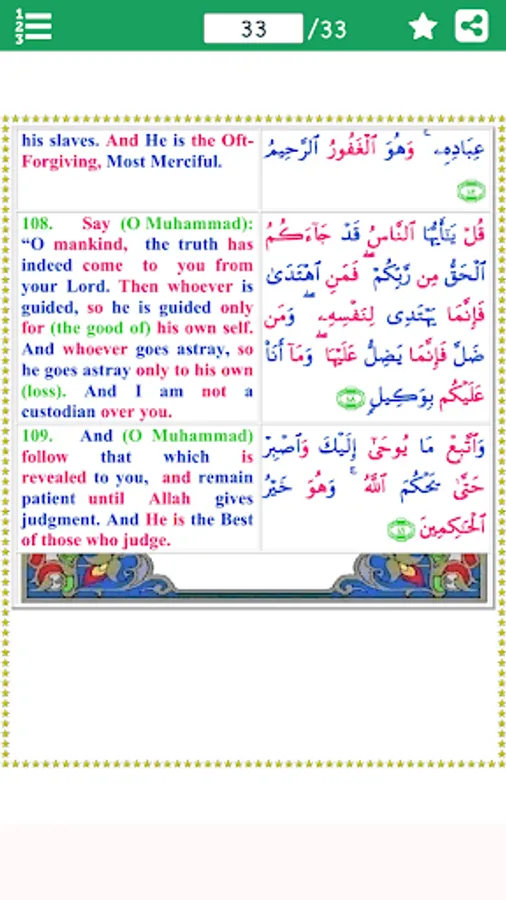 1
2
3
33 /33
his slaves. And He is the Oft-
Forgiving, Most Merciful.
عِبَادِهِۦ ۚ وَهُوَ ٱلْغَفُورُ ٱلرَّحِيمُ
108. Say (O Muhammad):
“O mankind, the truth has
indeed come to you from
your Lord. Then whoever is
guided, so he is guided only
for (the good of) his own self.
And whoever goes astray, so
he goes astray only to his own
(loss). And I am not a
custodian over you.
قُلْ يَـٰٓأَيُّهَا ٱلنَّاسُ قَدْ جَآءَكُمُ
ٱلْحَقُّ مِن رَّبِّكُمْ ۖ فَمَنِ ٱهْتَدَىٰ
فَإِنَّمَا يَهْتَدِى لِنَفْسِهِۦ ۖ وَمَن
ضَلَّ فَإِنَّمَا يَضِلُّ عَلَيْهَا ۖ وَمَآ أَنَا۠
عَلَيْكُم بِوَكِيلٍ
109. And (O Muhammad)
follow that which is
revealed to you, and remain
patient until Allah gives
judgment. And He is the Best
of those who judge.
وَٱتَّبِعْ مَا يُوحَىٰٓ إِلَيْكَ وَٱصْبِرْ
حَتَّىٰ يَحْكُمَ ٱللَّهُ ۚ وَهُوَ خَيْرُ
ٱلْحَـٰكِمِينَ